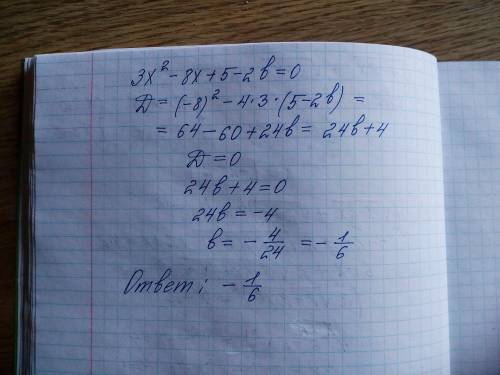 3x² - 8x + 5 - 2в = 0
D = (-8)² - 4·3·(5 - 2в) =
= 64 - 60 + 24в = 24в + 4
D = 0
24в + 4 = 0
24в = -4
в = - 4/24 = - 1/6
Ответ: - 1/6